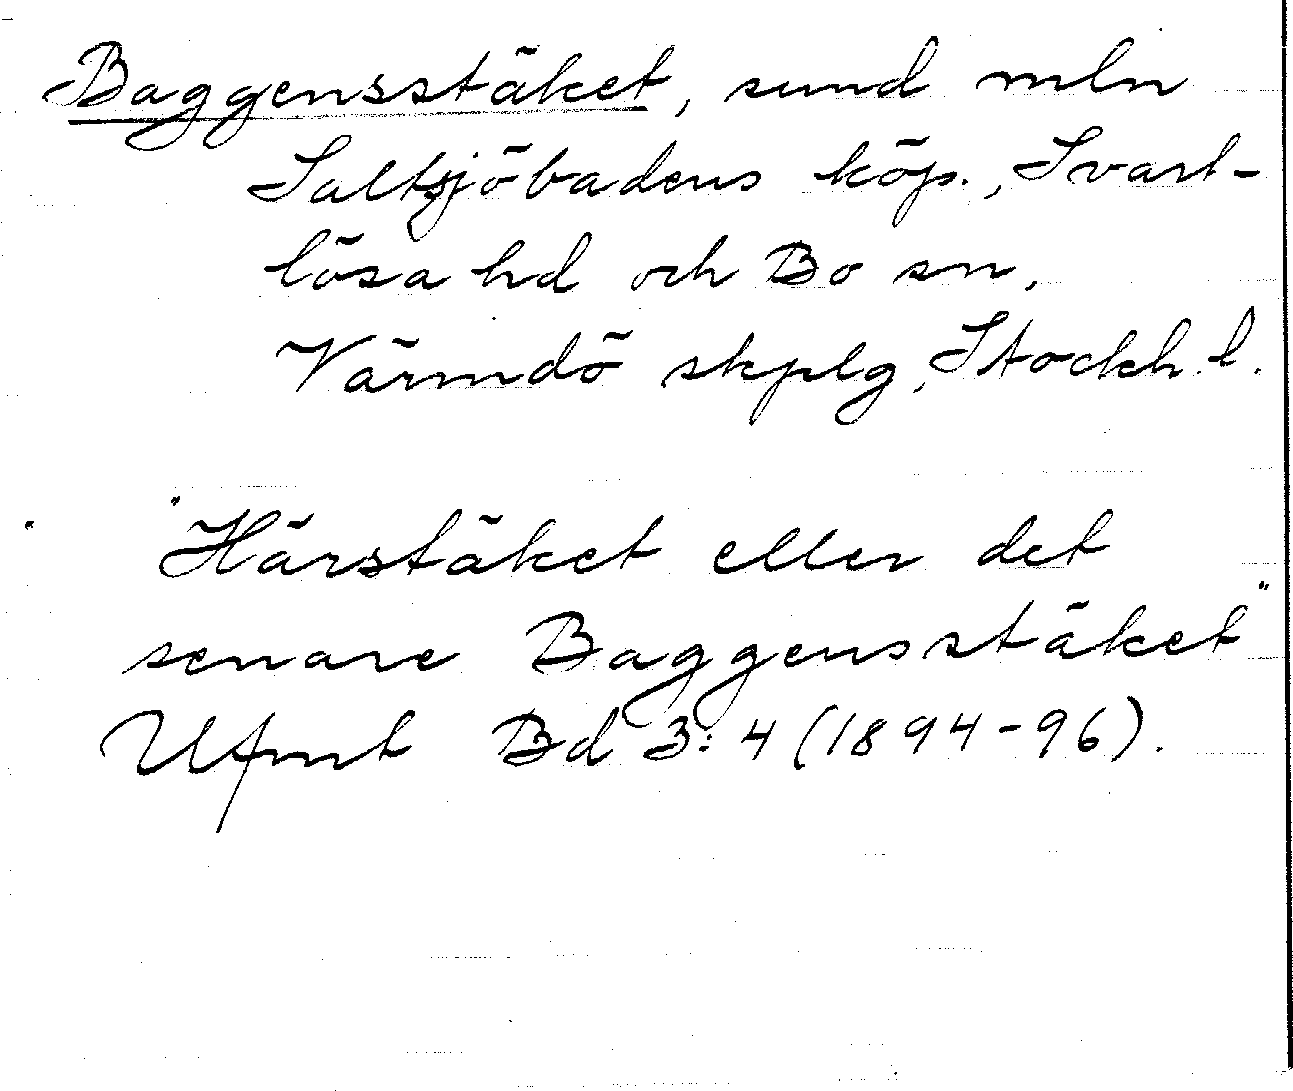 Baggensstäket, sund mln
Saltsjöbadens köp., Svart-
lösa hd och Bo sn,
Värmdö skplg, Stockh. l.
"Härstäket eller det
senare Baggensstäket"
Ufmt Bd 3:4 (1894-96).